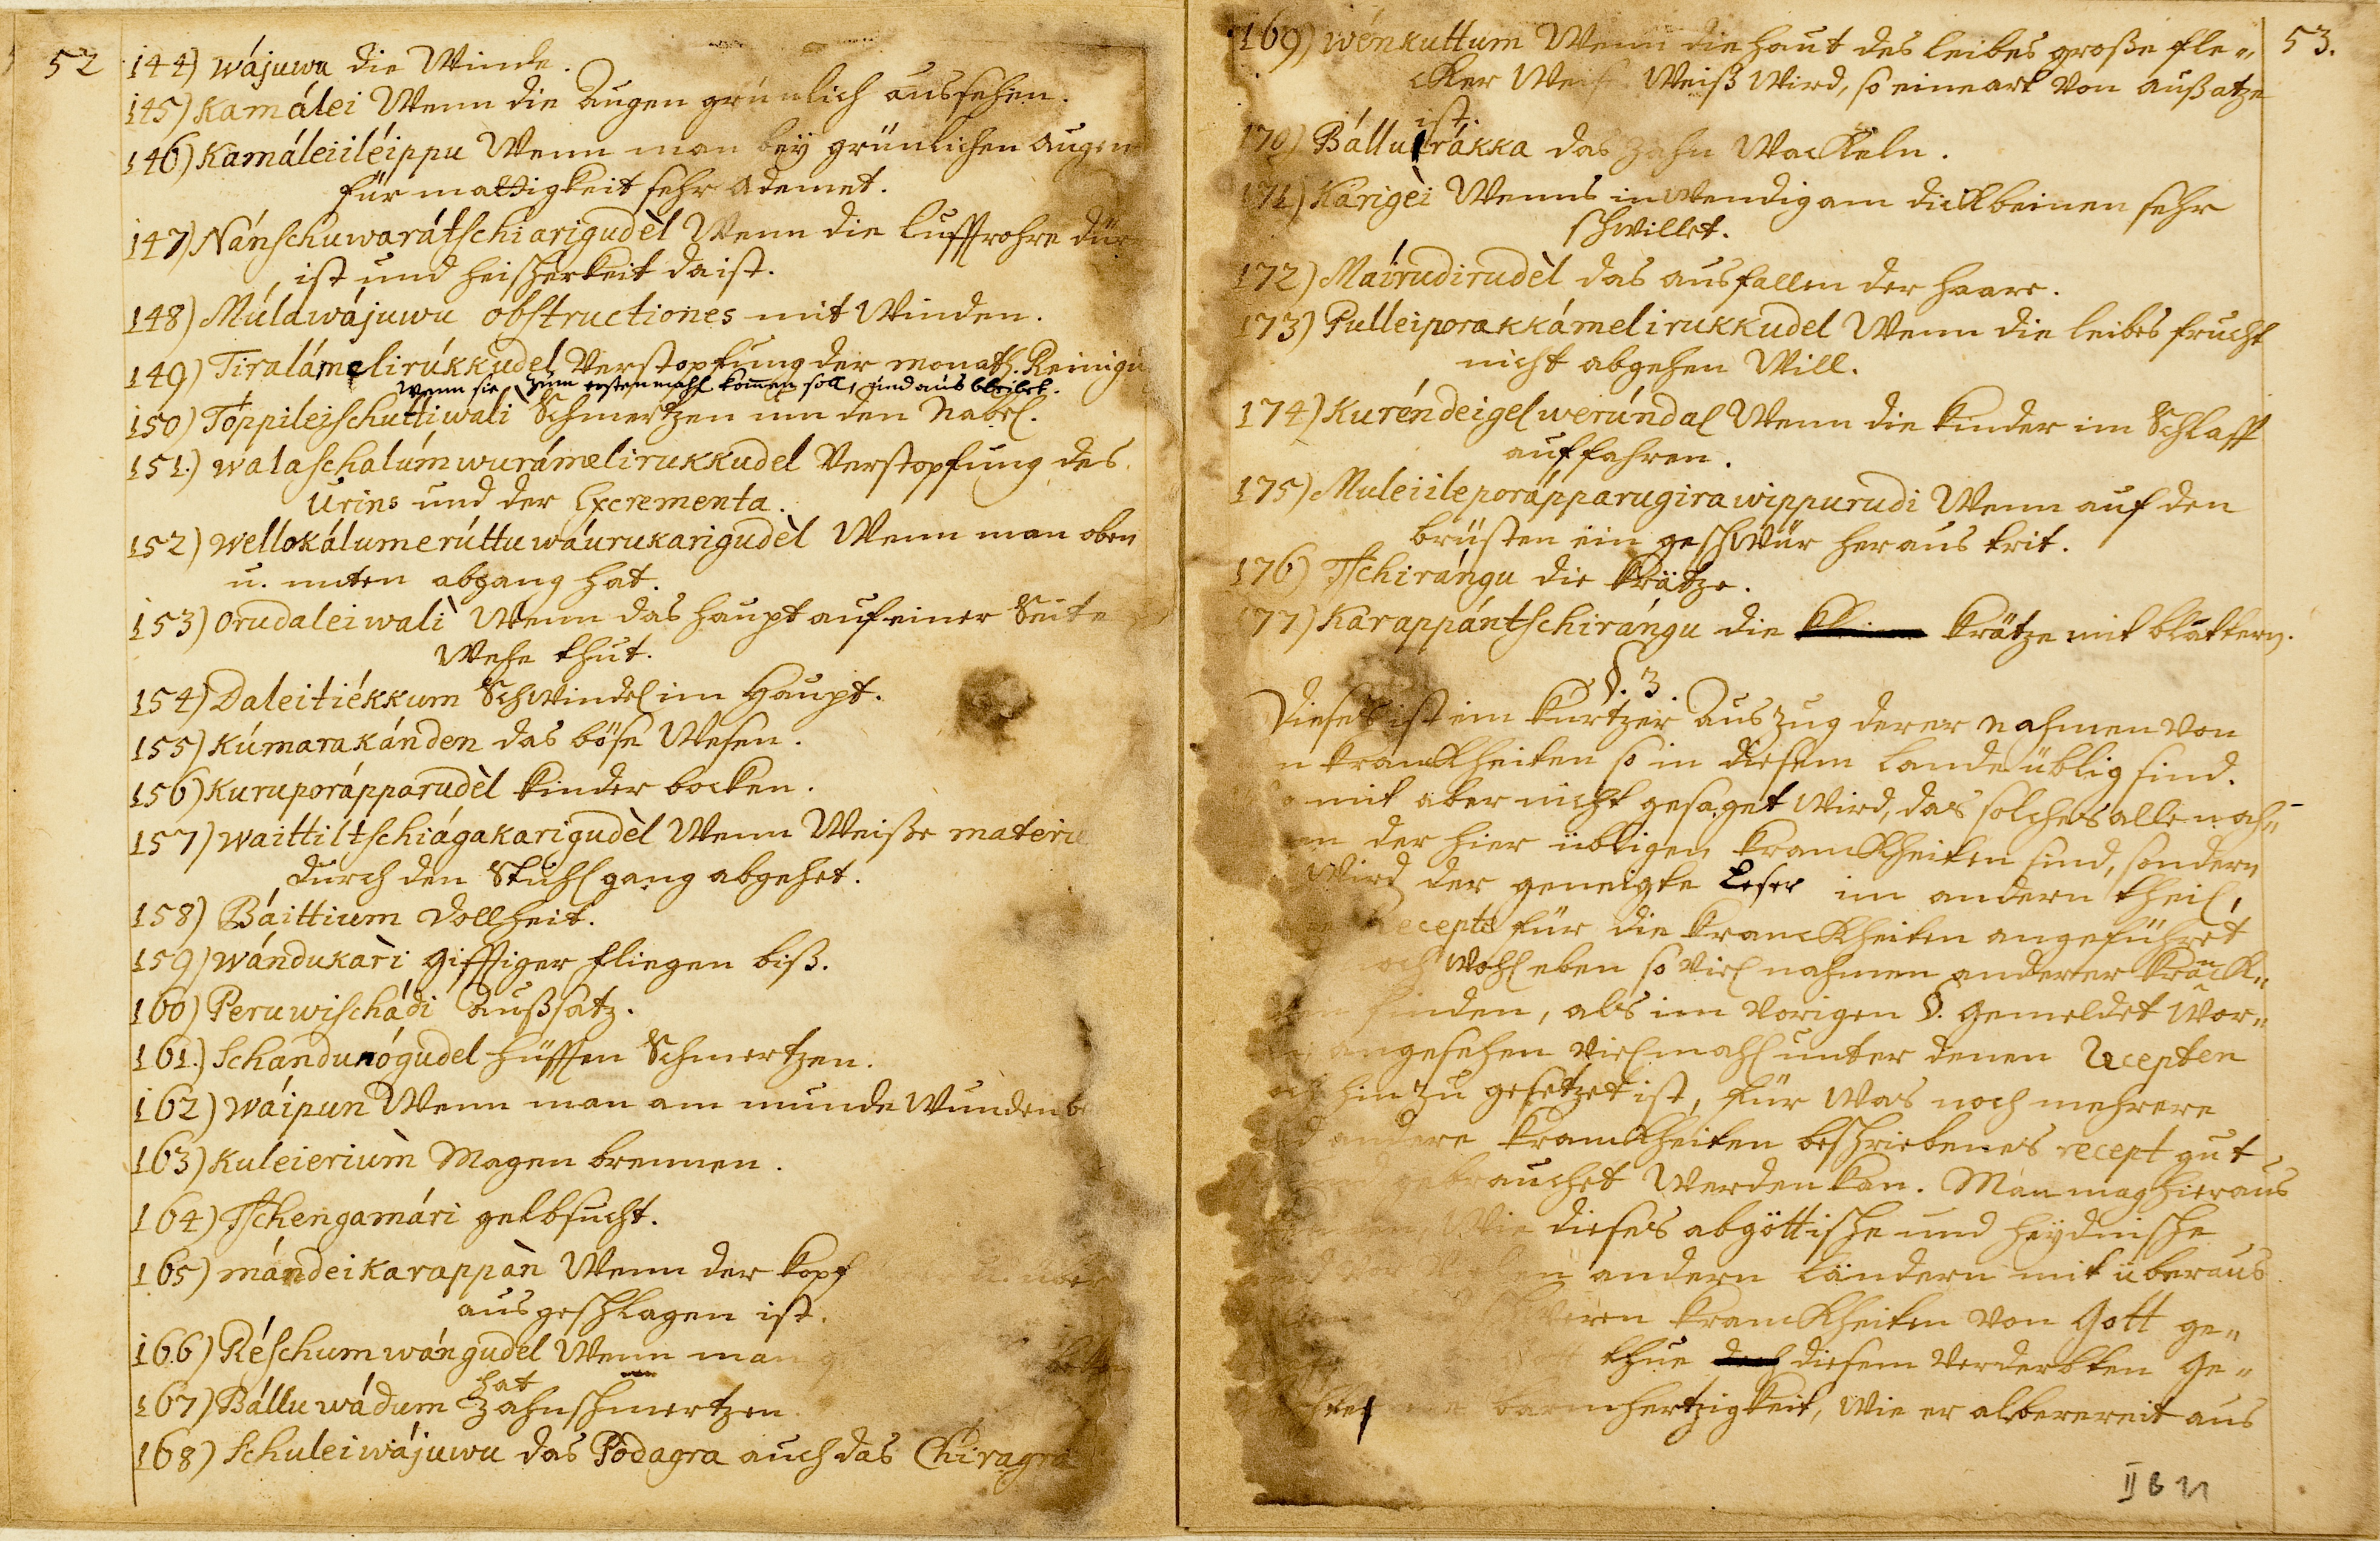 52
144) wájuwu die Winde.
145) Kamálei Wenn die Augen grünlich aussehen.
146) Kamáleiiléippu Wenn man beÿ grünlichen augen
für mattigkeit sehr Ademet.
147) Nánschuwarátschiarigudèl Wenn die lufftrohre dür
ist und heischerkeit da ist.
148) Múlawájuwu obstructiones mit Winden.
149) Tiralámelirúkkudel Verstopfung der monatl. Reinigu
Wenn sie zum erstenmahl kom̄en soll, und aus bleibet.
150) Toppileischuttiwali Schmertzen um den Nabel.
151.) walaschalúm wurámelirukkudel Verstopfung des
Urins und der Excrementa.
152) wellokálumerúttuwáurukarigudèl Wenn man oben
u. unten abgang hat.
153) Orudaleiwalì Wenn das haupt auf einer Seite
Wehe thut.
154) Daleitiékkum Schwindel im Haupt.
155) Kúmarakánden das böse Wesen.
156) Kuruporápparudèl kinder bocken.
157) waittiltschiágakarigudèl Wenn Weiße materie
durch den Stuhlgang abgehet.
158) Báittium Dollheit.
159) wándukarì gifftiger fliegen biß.
160) Peruwischádi Außsatz.
161.) Schandunógudel hüfften Schmertzen.
162) wáipun Wenn man am munde Wunden
163) Kuleieriùm Magen brennen.
164) Tschengamári gelbsucht.
165) mándeikarappàn Wenn der kopf u. über
ausgeschlagen ist.
166) Réschumwángudèl Wenn man
hat
167) Bálluwádum Zahnschmertzen.
168) Schuleiwájuwu das Podagra auch das Chiragra
53.
169) wénkuttum Wenn die haut des leibes große fle„
cker Weiß Wird, so eine art von außatze
ist.
170) Bálluárákka das Zahn Wackeln.
171) Kárigèi Wenns inwendig am dickbeinen sehr
schwillet.
172) Mairudirudèl das ausfallen der haare.
173) Pulleiporakkámelirukkudel Wenn die leibes frucht
nicht abgehen Will.
174) Kuréndeigel werúndal Wenn die kinder im Schlaff
auffahren.
175) Muleiileporápparugirawippurudi Wenn auf den
brüsten ein geschwür heraus trit.
176) Tschirángu die krätze.
177) Karappántschirángu die krätze mit blattern.
§. 3.
Dieses ist ein kurtzer auszug derer nahmen von
n kranckheiten so in diesem Lande üblig sind.
mit aber nicht gesaget wird, das solches alle nah„
en der hier übligen kranckheiten sind, sondern
Wird der geneigte Leser im andern theil,
Recepte für die kranckheiten angeführet
och wohl eben so viel nahmen anderer kran̄ck„
ten finden, als im vorigen §. gemeldet Wor„
angesehen vielmahl unter denen Recepten
hinzu gesetzet ist, für Was noch mehrere
andere kranckheiten beschriebenes recept gut
gebrauchet Werden kan. Man mag hieraus
Wie dieses abgöttische und heÿdnische
andern Ländern mit überaus
schweren kranckheiten von Gott ge„
Gott thue diesem verderbten Ge„
barmhertzigkeit, Wie er alberereit aus
II B 21